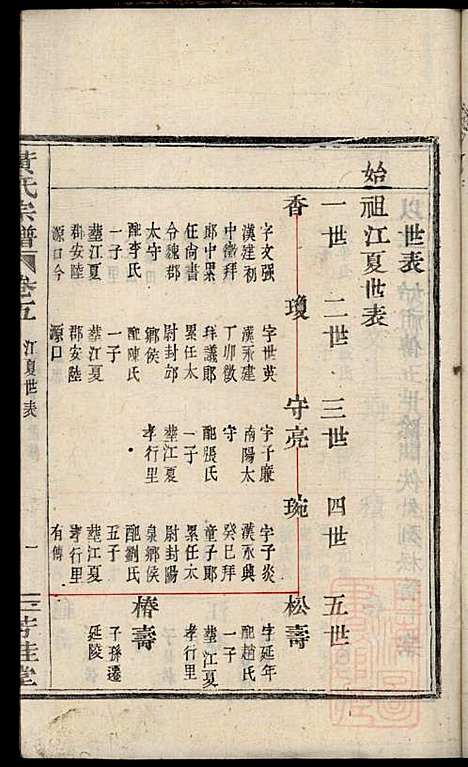 世表
始祖江夏世表
一世 二世 三世 四世 五世
香
字文强
漢建初
中徵拜
郎中累
任尚書
太守
分魏郡
配李氏
一子
塟江夏
郡安陸
源口今
瓊
字世英
漢永建
丁卯徵
拜議郎
累任太
尉封邟
鄉侯
配陳氏
一子
塟江夏
郡安陸
源口
守亮
字子廉
南陽太
守
配張氏
一子
塟江夏
孝行里
琬
字子炎
漢永興
癸巳拜
童子郎
累任太
尉封陽
泉鄉侯
配劉氏
五子
塟江夏
孝行里
有傳
松壽
字延年
配趙氏
一子
塟江夏
孝行里
椿壽
子孫遷
延陵
黃氏宗譜
卷五
江夏世表
一